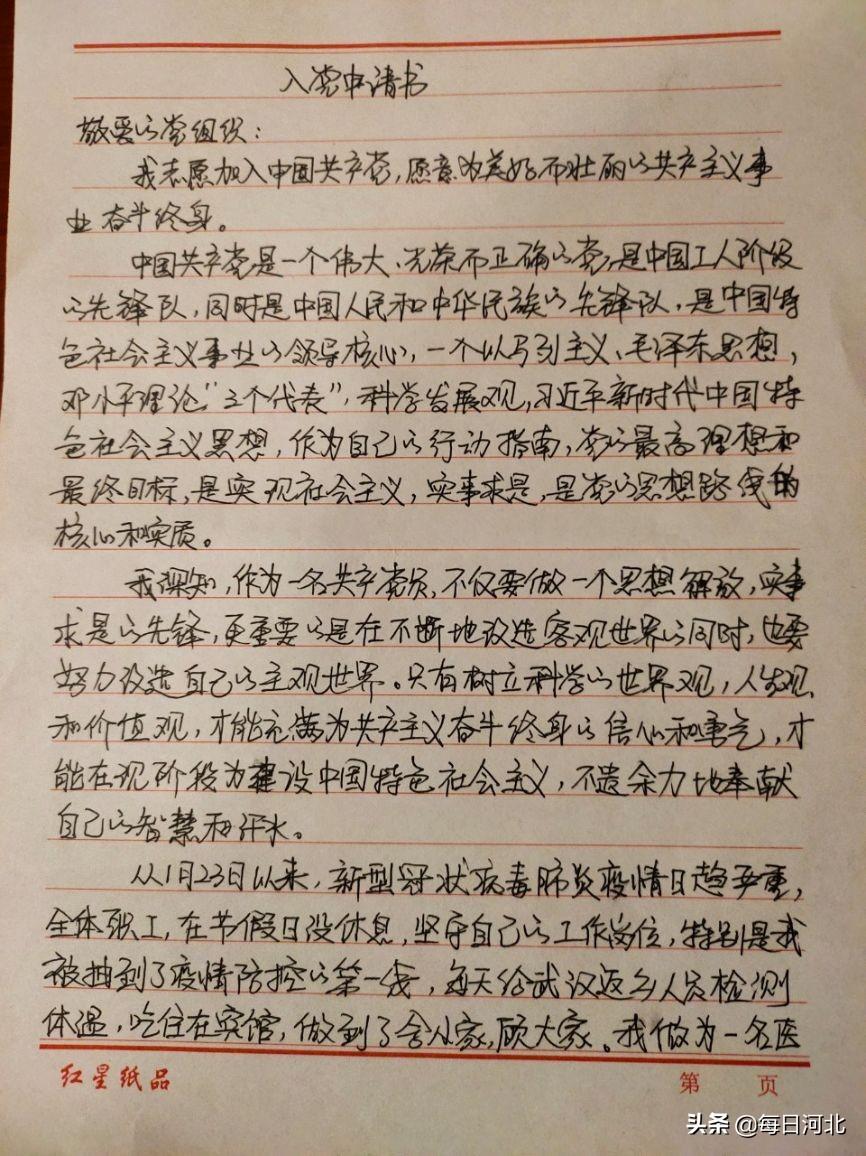 入党申请书
敬爱的党组织：
我志愿加入中国共产党，愿意为美好而壮丽的共产主义事
业奋斗终身。
中国共产党是一个伟大、光荣而正确的党，是中国工人阶级
的先锋队，同时是中国人民和中华民族的先锋队，是中国特
色社会主义事业的领导核心，一个以马列主义、毛泽东思想，
邓小平理论“三个代表”，科学发展观，习近平新时代中国特
色社会主义思想，作为自己的行动指南，党的最高理想和
最终目标，是实现社会主义，实事求是，是党的思想路线的
核心和实质。
我深知，作为一名共产党员，不仅要做一个思想解放，实事
求是的先锋，更重要的是在不断地改造客观世界的同时，也要
努力改造自己的主观世界。只有树立科学的世界观，人生观
和价值观，才能充满为共产主义奋斗终身的信心和勇气，才
能在现阶段为建设中国特色社会主义，不遗余力地奉献
自己的智慧和汗水。
从1月23日以来，新型冠状病毒肺炎疫情日趋严重，
全体职工，在节假日没休息，坚守自己的工作岗位，特别是我
被抽到了疫情防控的第一线，每天给武汉返乡人员检测
体温，吃住在宾馆，做到了舍小家，顾大家。我做为一名医
红星纸品
第 页
头条 @每日河北